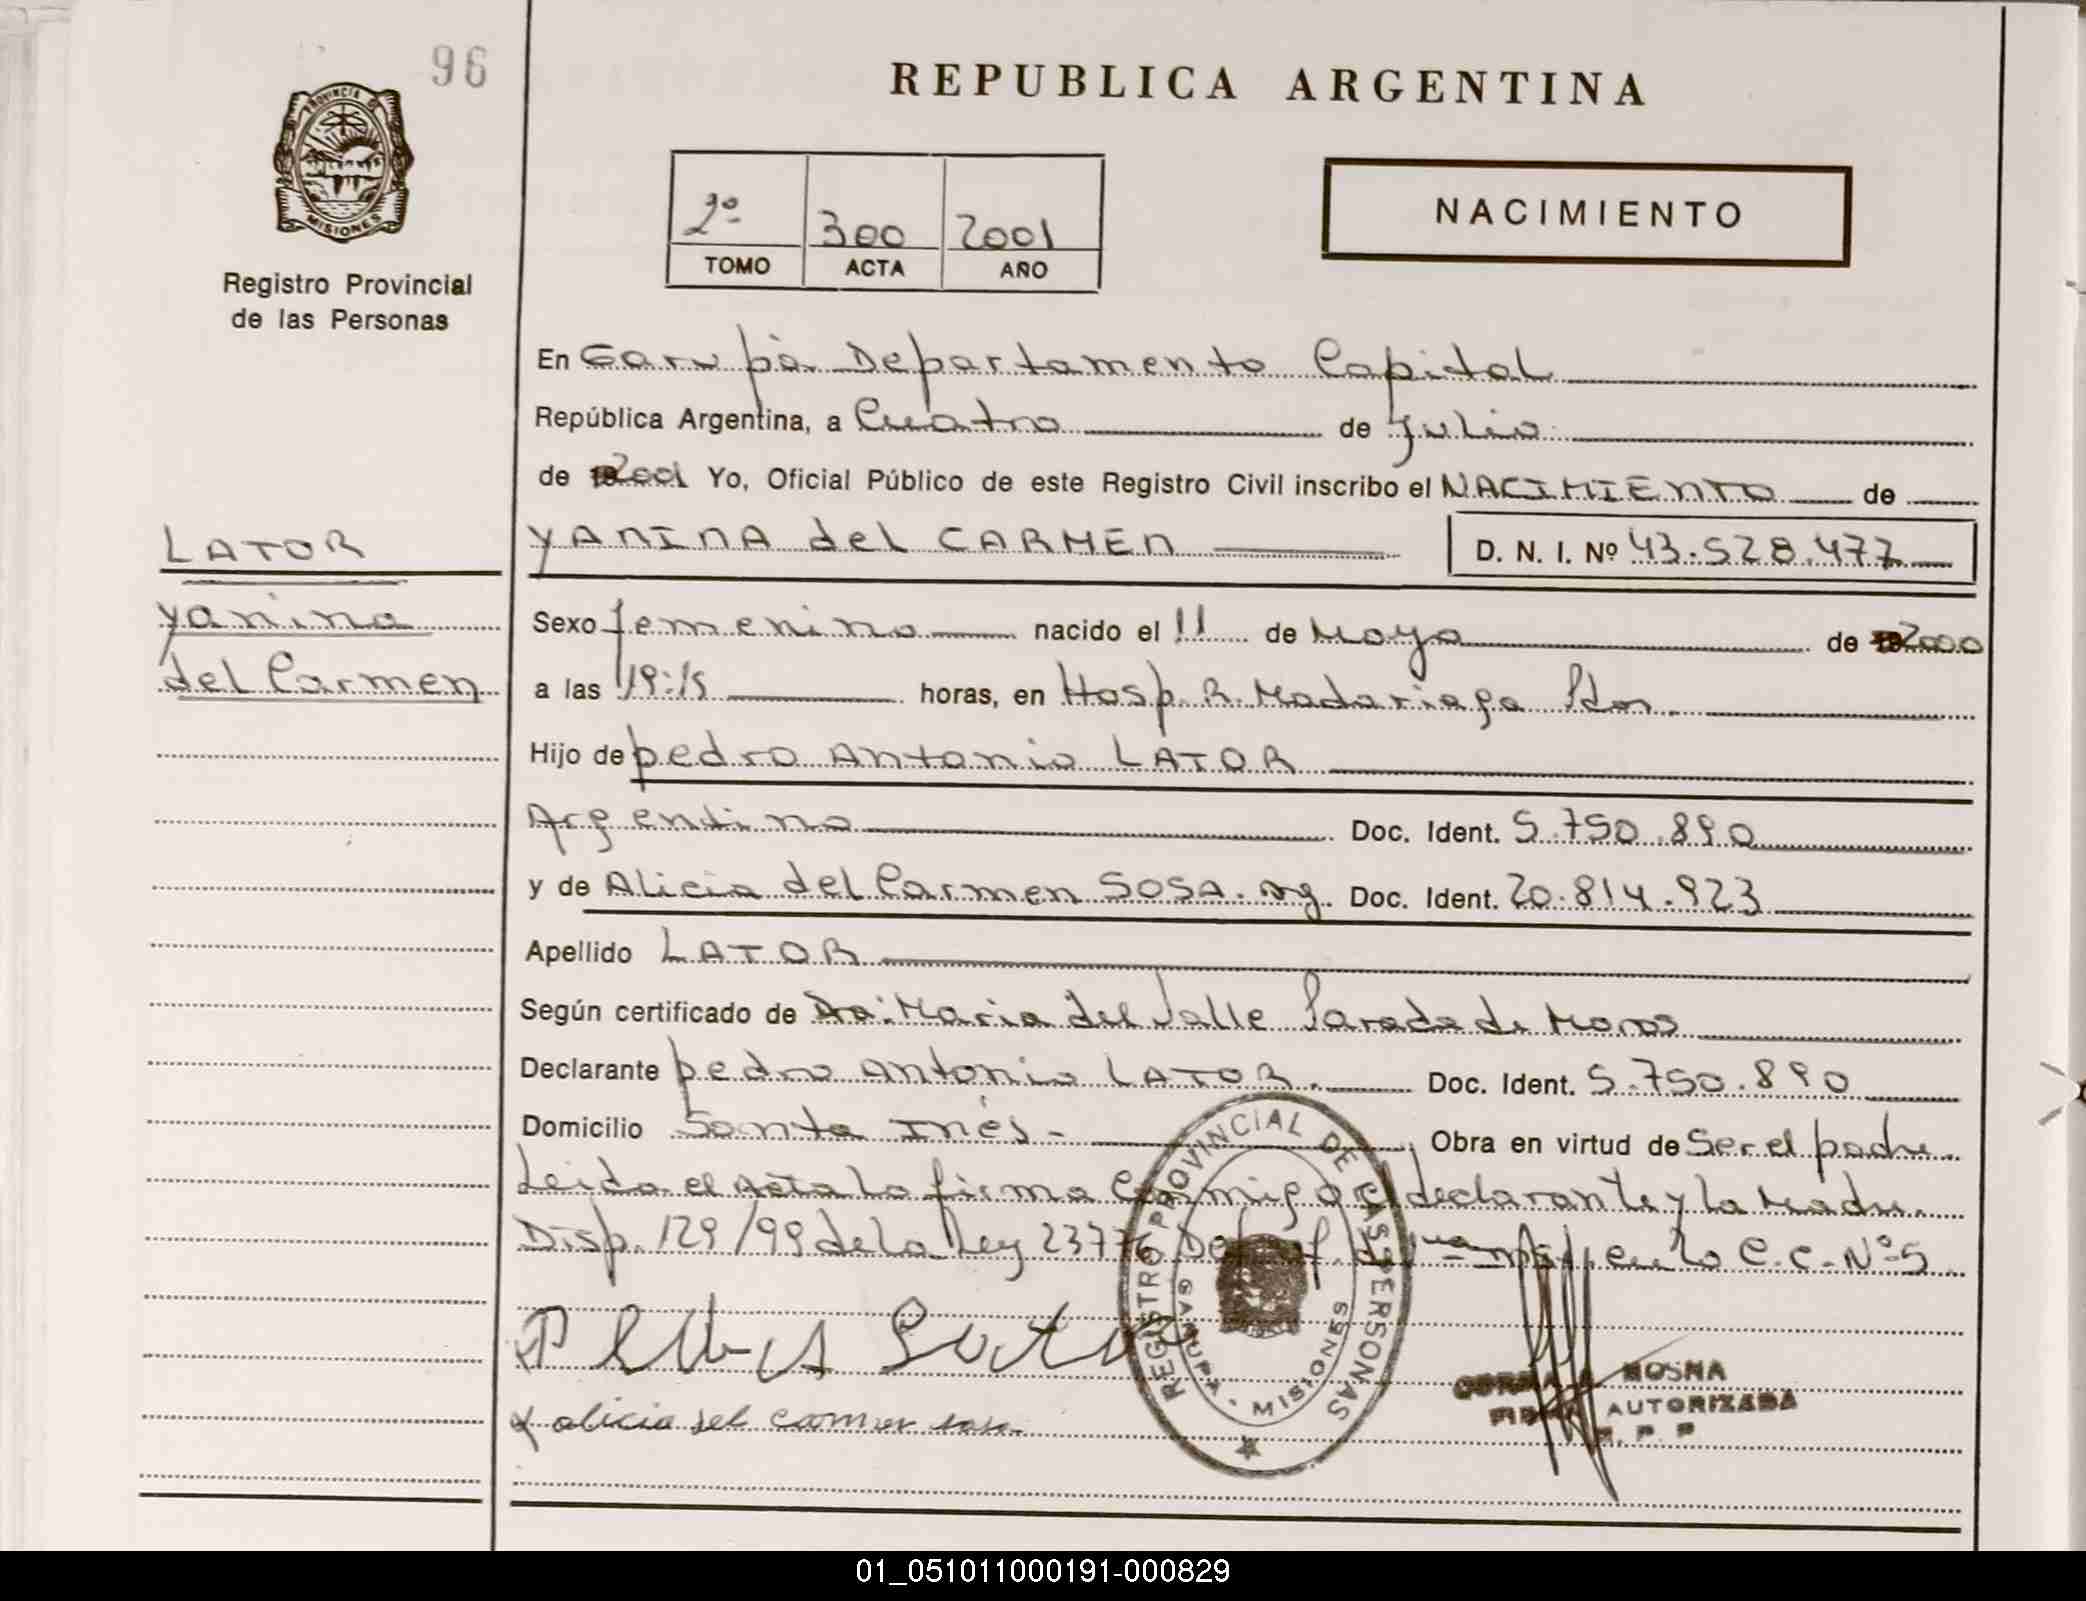 96
REPUBLICA ARGENTINA
PROVINCIA DE
MISIONES
Registro Provincial
de las Personas
2º 300 2001
TOMO ACTA AÑO
NACIMIENTO
En Garupá Departamento Capital
República Argentina, a Cuatro de Julio
de 2001 Yo, Oficial Público de este Registro Civil inscribo el NACIMIENTO de
LATOR
yanina
del Carmen
YANINA del CARMEN D. N. I. Nº 43.528.477
Sexo femenino nacido el 11 de Mayo de 2000
a las 19:15 horas, en Hosp. R. Madariaga Pdas.
Hijo de pedro Antonio LATOR
Argentino Doc. Ident. 5.750.890
y de Alicia del Carmen SOSA. arg. Doc. Ident. 20.814.923
Apellido LATOR
Según certificado de Dra: Maria del Valle Parada de
Declarante pedro Antonio LATOR. Doc. Ident. 5.750.890
Domicilio Santa Inés - Obra en virtud de Ser el padre
Leida el Acta la firma Conmigo el declarante y la Madre.
Disp. 129/99 de la Ley 23776 C.C. Nº 5
alicia del carmen sosa
REGISTRO PROVINCIAL DE LAS PERSONAS
GARUPA - MISIONES
NOSNA
AUTORIZADA
R. P. P
01_051011000191-000829